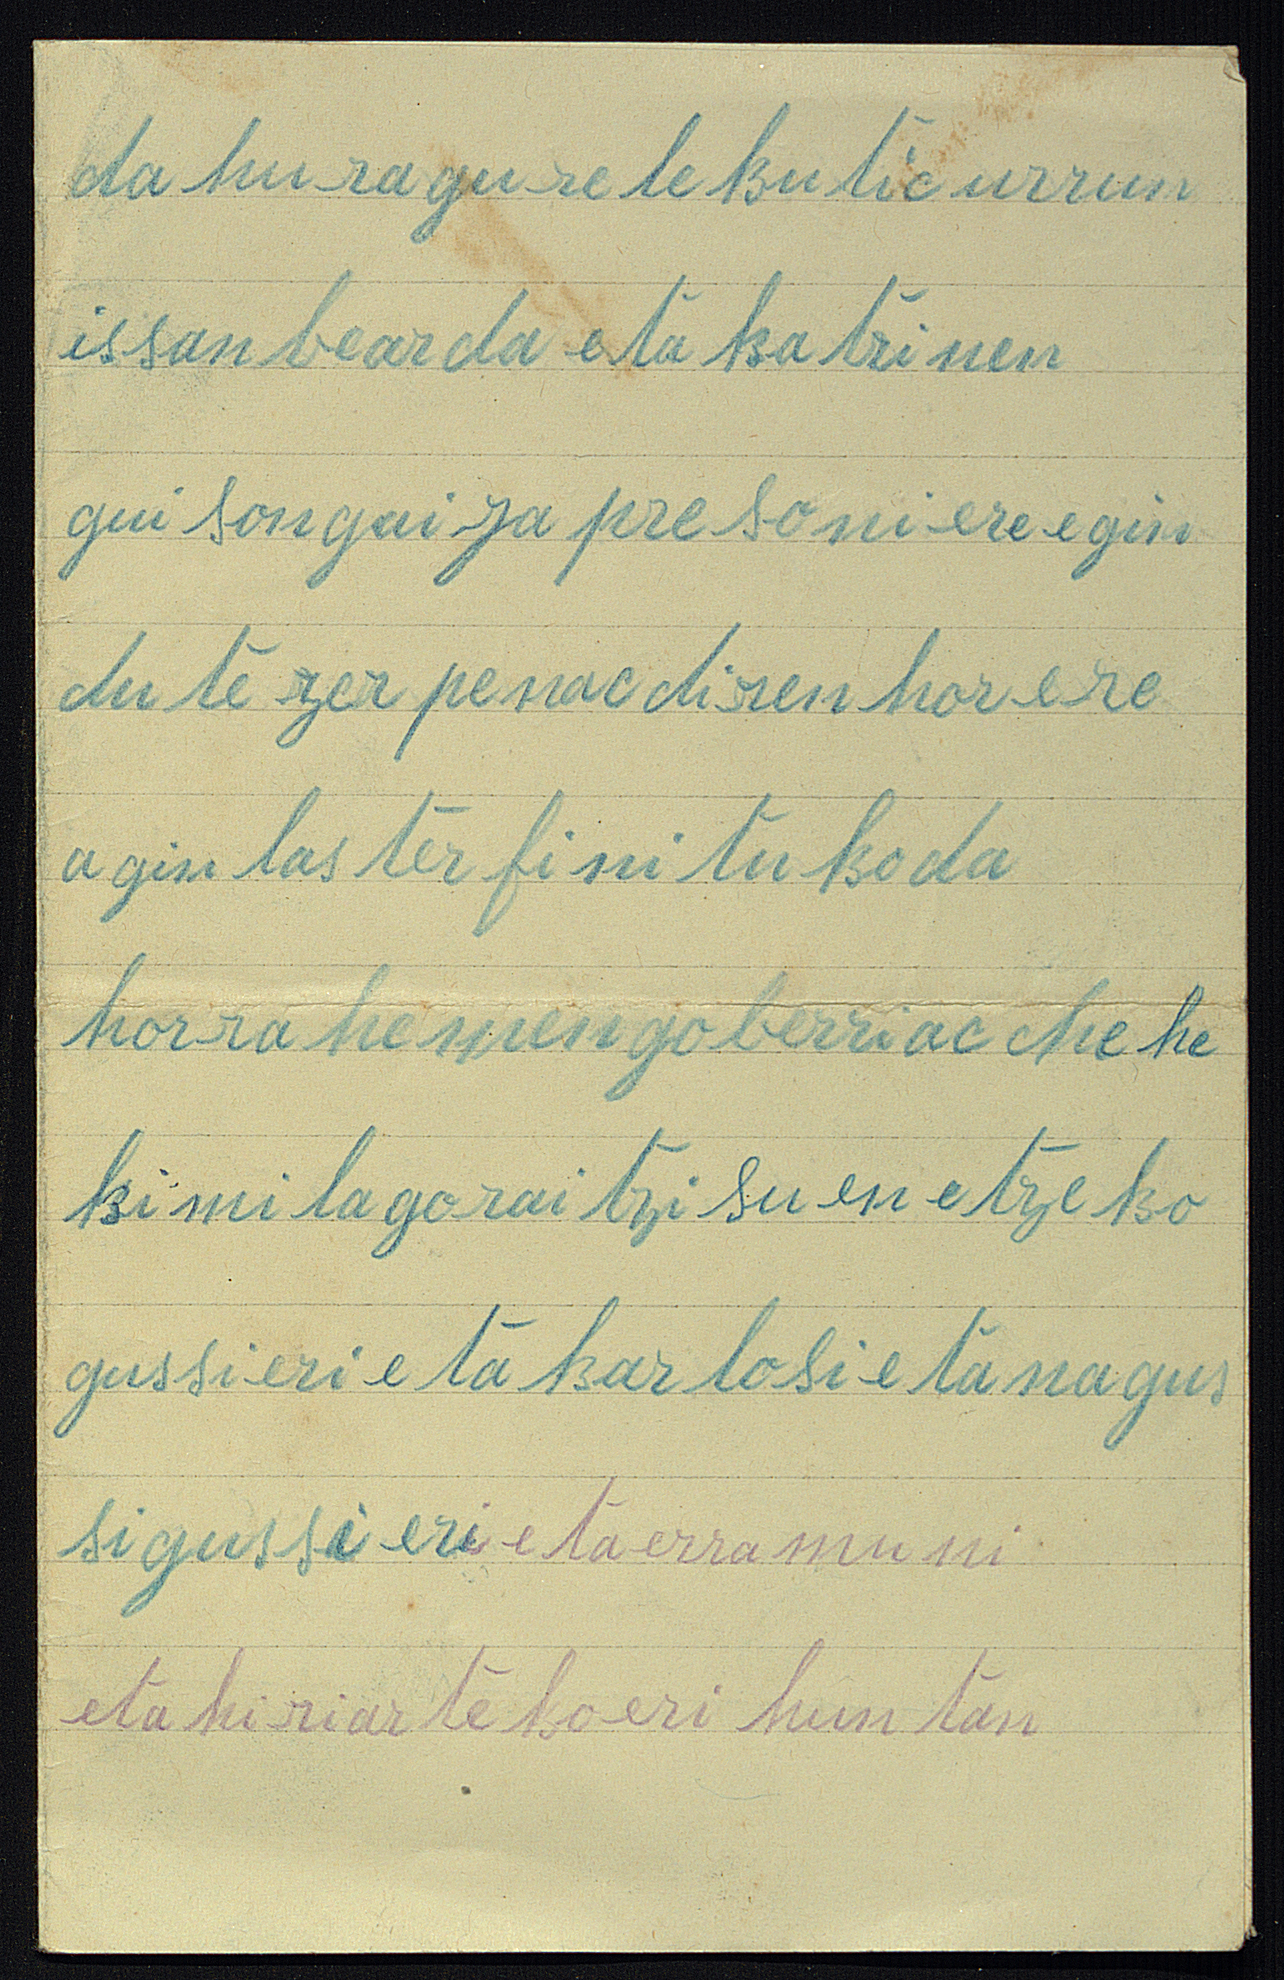 da hura gure lekutic urrun
issan bear da eta katrinen
guisongaiza presoniere egin
dute zer penac diren hor ere
agin laster finituko da
horra hemengo berriac che he
ki mila goraitzi suen etzeko
gussieri eta karlosi eta nagus
si gussieri eta erramuni
eta hiriarteko eri huntan